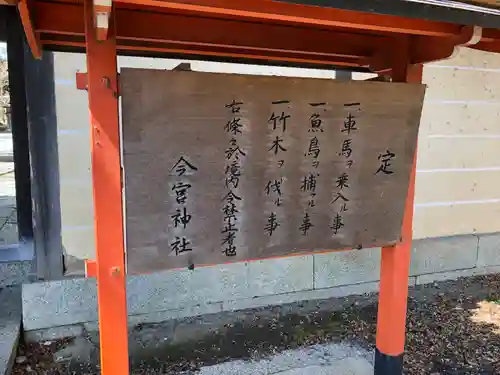 定
一車馬ヲ乗入ル事
一魚鳥ヲ捕フル事
一竹木ヲ伐ル事
右條々於境内令禁止者也
今宮神社